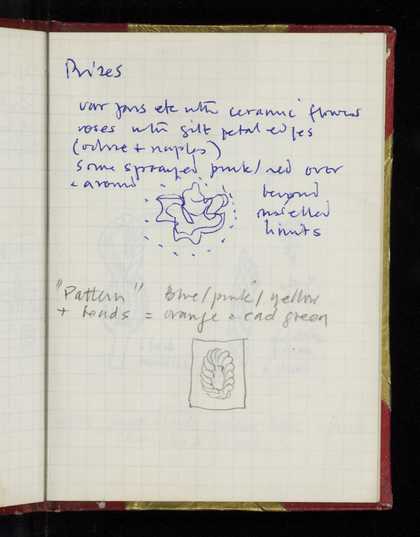 Prizes
var jars etc with ceramic flowers
roses with gilt petal edges
(ochre + naples)
Some sprayed pink/red over
+ around
beyond
modelled
limits
"Pattern" Blue/pink/yellow
+ beads = orange + cad green